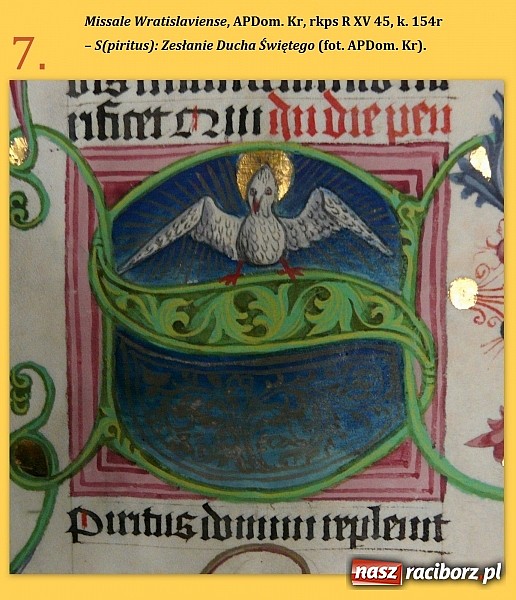 Missale Wratislaviense, APDom. Kr, rkps R XV 45, k. 154r
7. – S(piritus): Zesłanie Ducha Świętego (fot. APDom. Kr).
rificet Qui In die pen
piritus domini replevit
nasz raciborz.pl